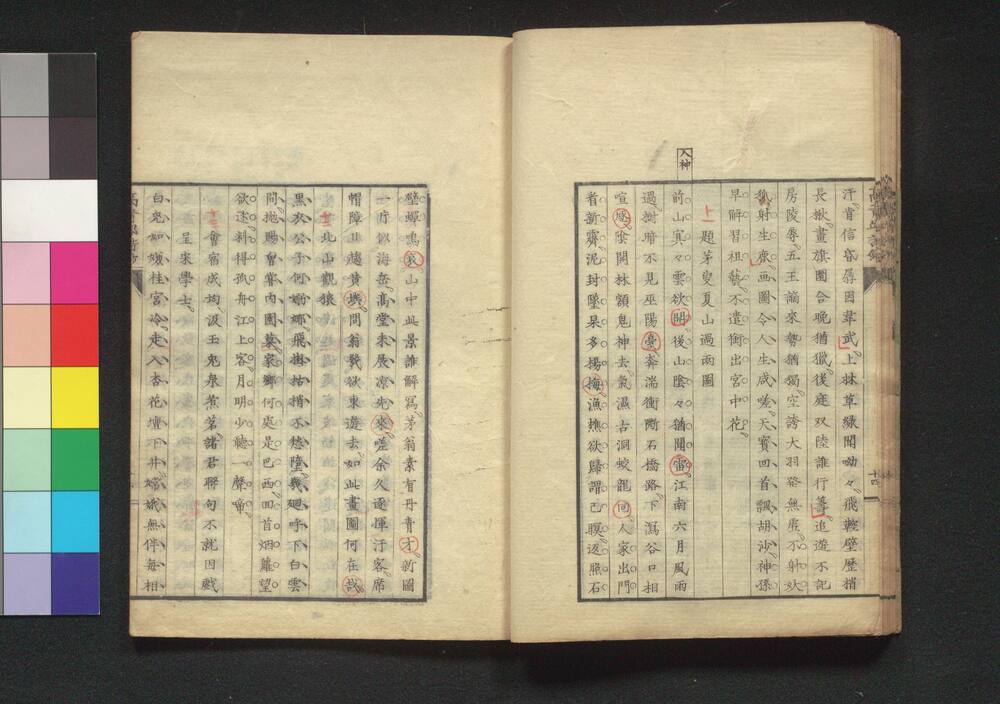 入神
汗青信容易因草武上抹草綠聞呦々飛鞚壁歷捎
長楸畫旗圍合晚猶獵後庭双陸誰行籌追遊不記
房陵辱五王謫來勢猶獨空誇大羽發無虛不射妖
狐射生鹿画圖令人生感嗟天寶回首飄胡沙神孫
早解習祖藝不遣銜出宮中花
十一 題茅叟夏山過雨圖
前山寅々雲欲開後山陰々猶聞雷江南六月風雨
過樹暗不見巫陽臺奔湍衝斷石橋路下瀉谷口相
喧豗陰開林額鬼神去氣濕古洞蛟龍回人家出門
看新霽泥封墜果多楊梅漁樵欲歸謂已暝返照石
壁蟬鳴哀山中此景誰解寫茅翁素有丹青才新圖
一片似海岳高堂未展凉先來嗟余久逐揮汗客席
帽障日趨黃埃問翁幾欲東遊去如此畫圖何在哉
十二 北山觀猿
黑衣公子何嫋娜飛掛枯梢不愁墮幾迴呼下白雲
間拋賜會
家鄉何處是巴西回首烟蘿望
欲迷料得孤舟江上客月明少聽一聲啼
十三 會宿成均汲玉兔泉煮茗諸君聯句不就因戲
呈宋學士
白兔如嫌桂宮冷走入杏花壇下井嫦娥無伴每相
十四